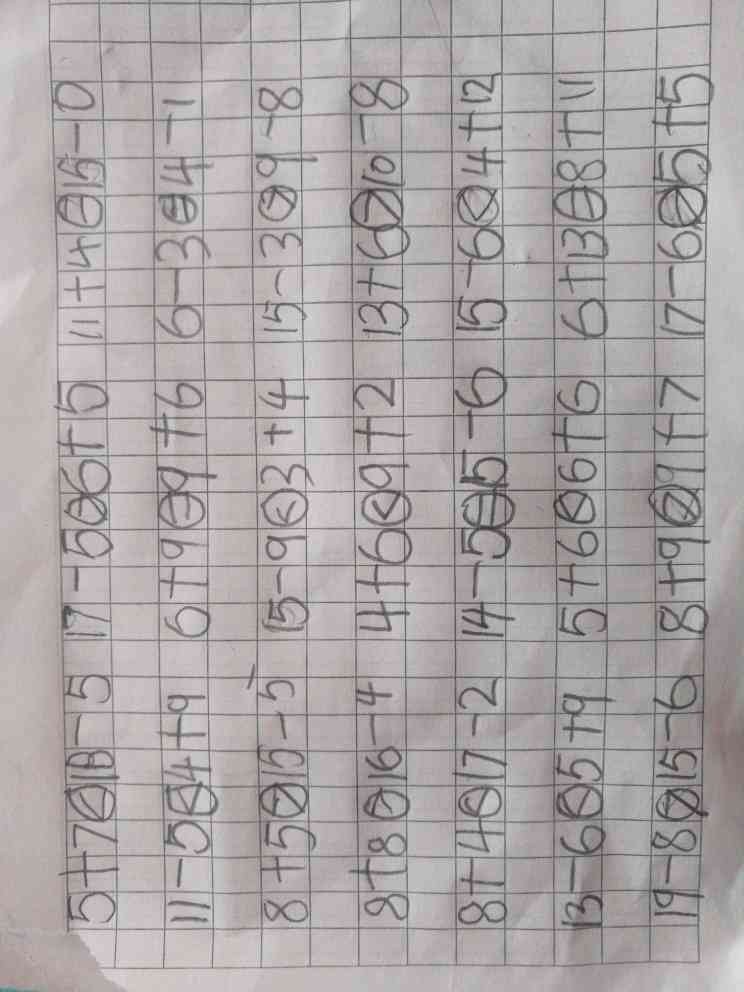 5+7<18-5 17-5>6+5 11+4=15-0
11-5<4+9 6+9=9+6 6-3=4-1
8+5>15-5 15-9<3+4 15-3>9-8
8+8>16-4 4+6<9+2 13+6>10-8
8+4<17-2 14-5=15-6 15-6<4+12
13-6<5+9 5+6<6+6 6+13=8+11
19-8>15-6 8+9>9+7 17-6>5+5